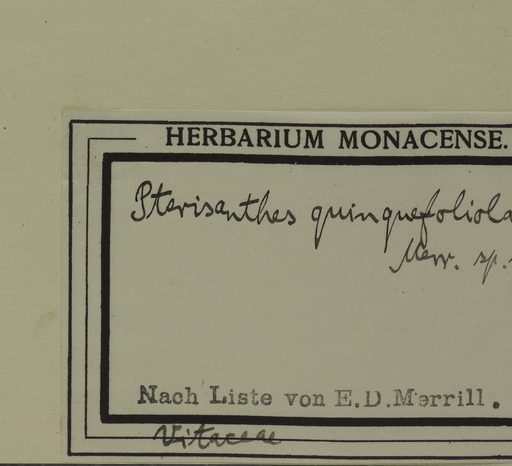 HERBARIUM MONACENSE.
Pterisanthes quinquefoliola
Merr. sp.
Nach Liste von E.D.Merrill.
Vitaceae